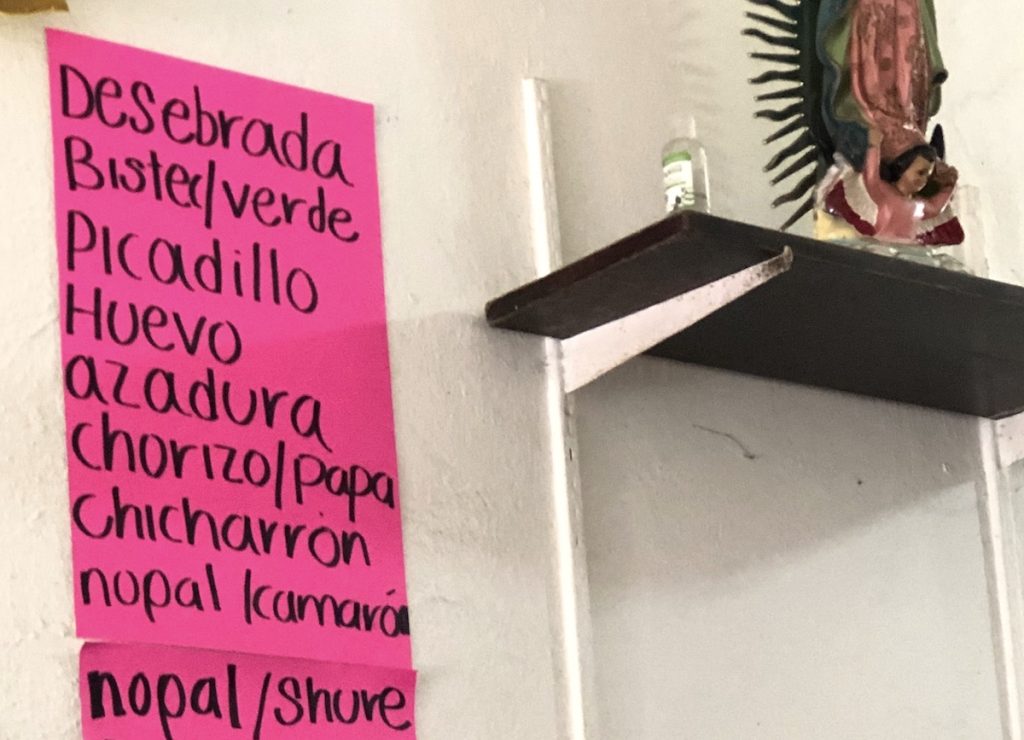 Desebrada
Bistec/verde
Picadillo
Huevo
azadura
chorizo/papa
chicharrón
nopal /camarón
nopal/shure